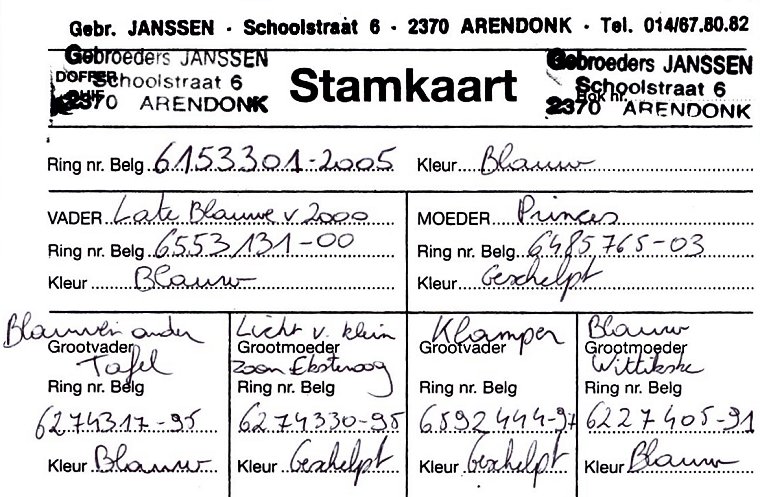 Gebr. JANSSEN · Schoolstraat 6 · 2370 ARENDONK · Tel. 014/67.80.82
Gebroeders JANSSEN
DOFFER Schoolstraat 6
DUIF 2370 ARENDONK
Stamkaart
Gebroeders JANSSEN
Schoolstraat 6
2370 ARENDONK
Ring nr. Belg 6153301-2005 Kleur Blauw
VADER Late Blauwe v 2000
Ring nr. Belg 6553131-00
Kleur Blauw
MOEDER Princes
Ring nr. Belg 6485765-03
Kleur Geschelpt
Blauwen onder
Grootvader
Tafel
Ring nr. Belg
6274317-95
Kleur Blauw
Licht v. klein
Grootmoeder
zoon
Ring nr. Belg
6274330-95
Kleur Geschelpt
Klamper
Grootvader
Ring nr. Belg
6592444-97
Kleur Geschelpt
Blauw
Grootmoeder
Ring nr. Belg
6227405-91
Kleur Blauw